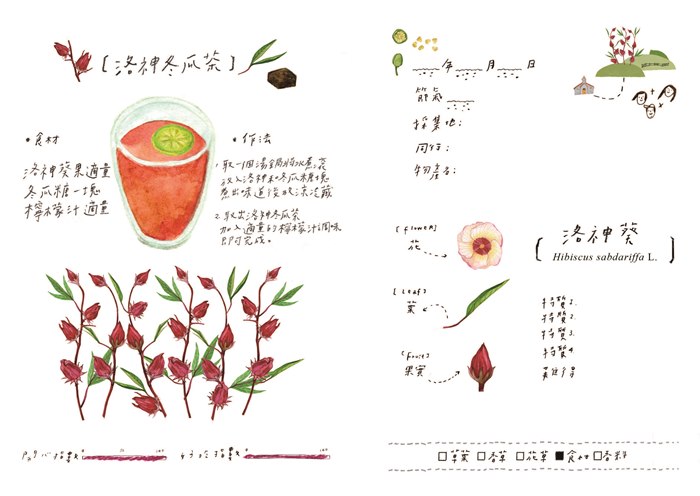 [洛神冬瓜茶]
•食材
洛神葵果適量
冬瓜糖一塊
檸檬汁適量
•作法
1.取一個湯鍋將水煮滾
放入洛神和冬瓜糖塊
煮出味道後放涼冷藏
2.取出洛神冬瓜茶
加入適量的檸檬汁調味
即可完成。
指數
指數
年 月 日
節氣
採集地:
同行:
物產:
[洛神葵]
Hibiscus sabdariffa L.
[flower]
花
[Leaf]
葉
[fruit]
果實
特質1.
特質2.
特質3.
特質4
□草葉 □香草 □花草 ■食材 □香料